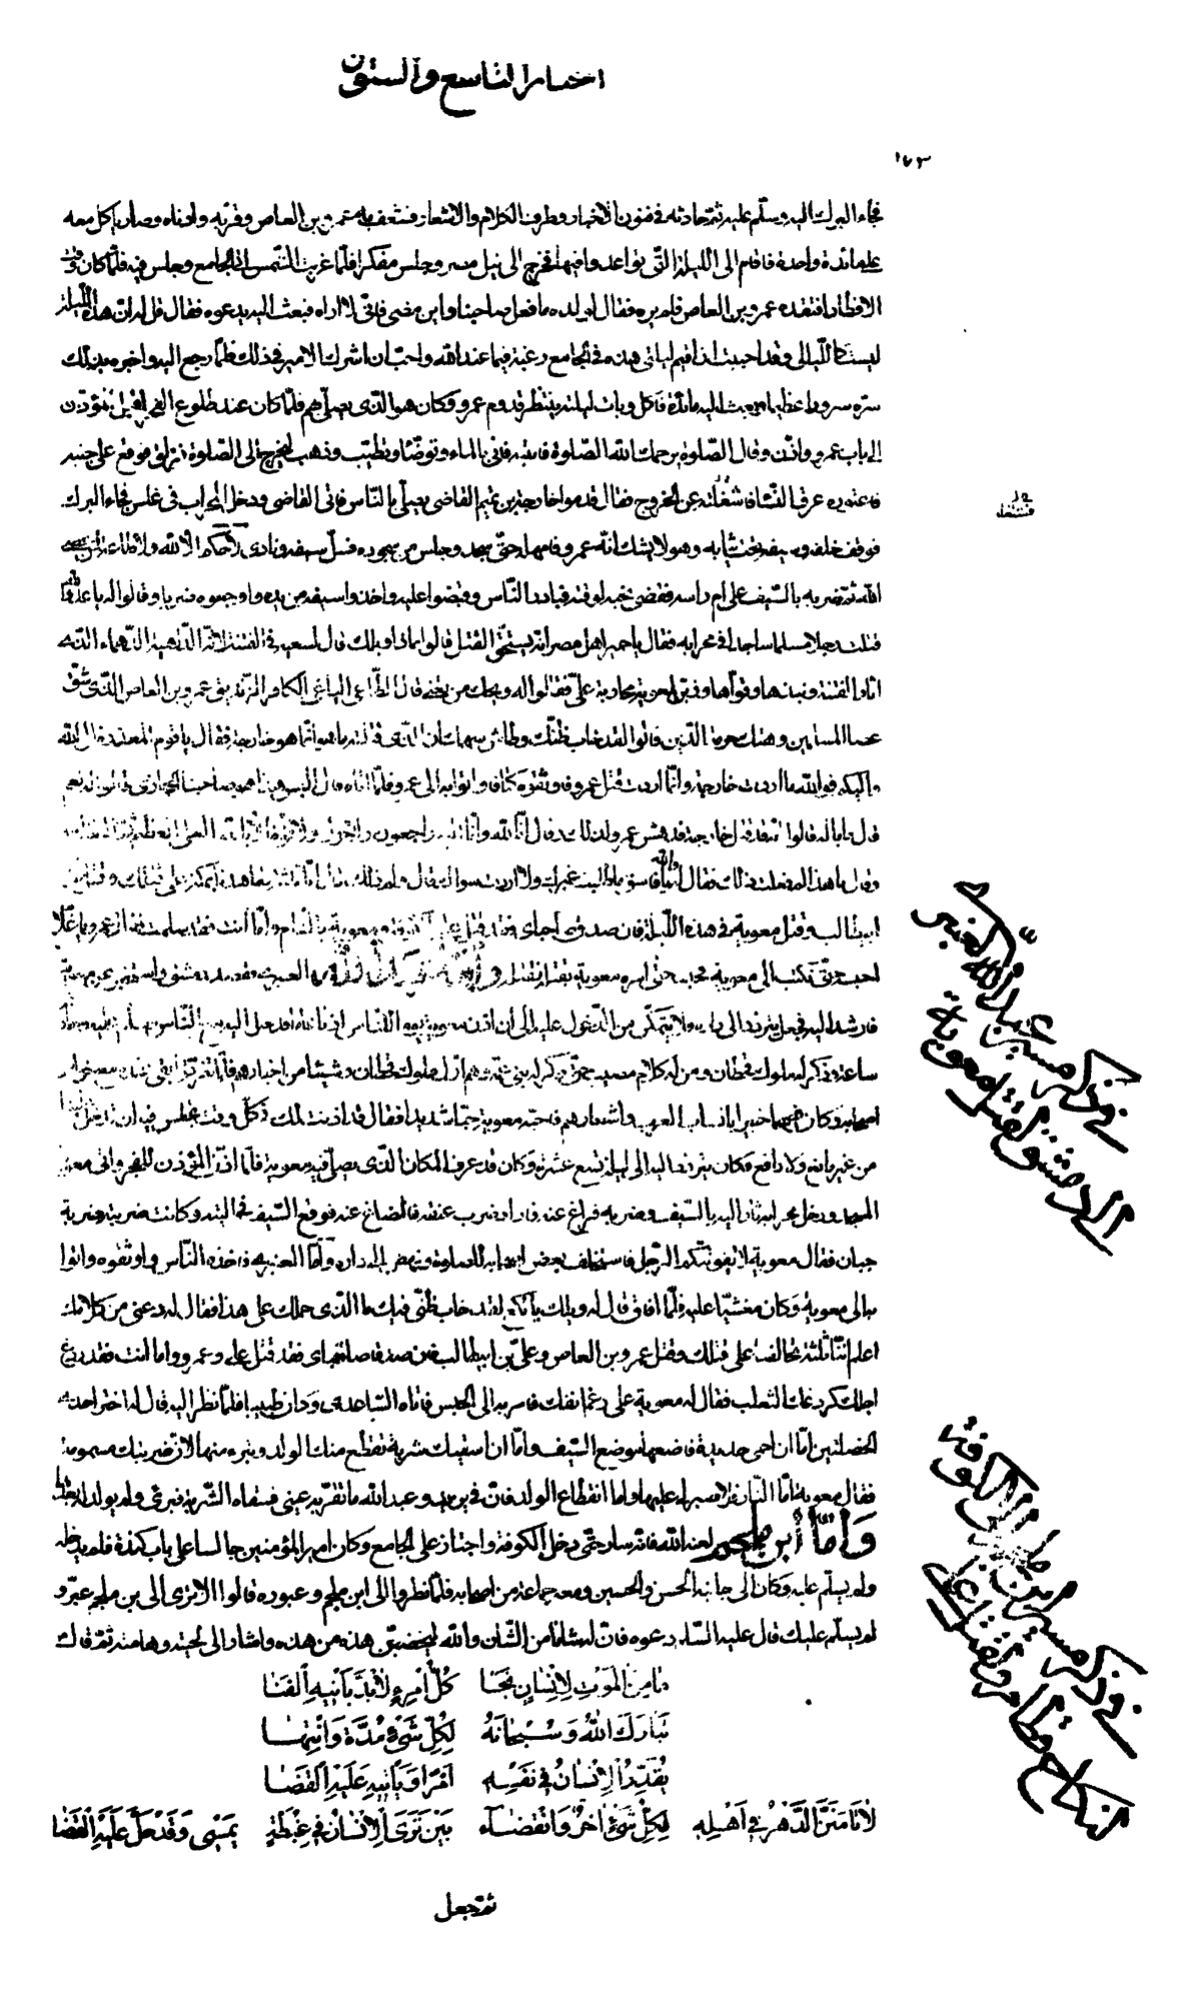 اخبار التاسع والستون
١٦٣
فجاء البرك اليه وسلّم عليه ثمّ حادثه فى فنون الاخبار وطرف الكلام والاشعار فشغف به عمرو بن العاص وقرّبه وادناه وصار ياكل معه
على مائدة واحدة فاقام الى الليلة التّى تواعدوا فيها فخرج الى نيل مصر وجلس مفكرا فلمّا غربت الشّمس اتى الجامع وجلس فيه فلمّا كان وقت
الافطار افتقده عمرو بن العاص فلم يره فقال لولده ما فعل صاحبنا واين مضى فانّى لا اراه فبعث اليه يدعوه فقال قل له انّ هذه الليلة
ليست كاللّيالى وقد احببت ان اقيم ليلتى هذه فى الجامع رغبة فيما عند الله واحبّ ان اشرك الامير فى ذلك فلمّا رجع اليه واخبره بذلك
سرّه سرورا عظيما وبعث اليه مائدة فاكل وبات ليلته ينتظر قدوم عمرو وكان هو الّذى يصلّى بهم فلمّا كان عند طلوع الفجر اقبل المؤذن
الى باب عمرو واذّن وقال الصّلوة يرحمك الله الصّلوة فانتبه فاتى بالماء وتوضّا وتطيّب وذهب ليخرج الى الصّلوة فزلق فوقع على جنبه
فاعتوره عرق النّسا فشغلته عن الخروج فقال قدموا خارجة بن تميم القاضى يصلّى بالنّاس فاتى القاضى ودخل المحراب فى غلس فجاء البرك
فوقف خلفه وسيفه تحت ثيابه وهو لا يشك انّه عمرو فامهله حتّى سجد وجلس من سجوده فسلّ سيفه ونادى لا حكم الا لله ولا طاعة لمن عصى
الله ثمّ ضربه بالسّيف على ام راسه فقضى نحبه لوقته فبادر النّاس وقبضوا عليه واخذوا سيفه من يده واوجعوه ضربا وقالوا له يا عدو الله
قتلت رجلا مسلما ساجدا فى محرابه فقال يا حمير اهل مصر انّه يستحقّ القتل قالوا بماذا ويلك قال لسعيه فى الفتنة لانّه الدّاهية الدّهماء الّذى
اثار الفتنة ونبذها وقوّاها وزيّن لمعوية محاربة علىّ فقالوا له ويحك من تعنى قال الطّاغى الباغى الكافر الزّنديق عمرو بن العاص الّذى شقّ
عصا المسلمين وهتك حرمة الدّين قالوا لقد خاب ظنّك وطاش سهمك انّ الّذى قتلته ما هو انّما هو خارجة فقال يا قوم المعذرة الى الله
واليكم فوالله ما اردت خارجة وانّما اردت قتل عمرو فاوثقوه كتافا واتوا به الى عمرو فلمّا راه قال اليس هذا هو صاحبنا الحجازى قالوا له نعم
قال ما باله قالوا انّه قد قتل خارجة فدهش عمرو لذلك وقال انّا لله وانّا اليه راجعون ولا حول ولا قوّة الا بالله العلىّ العظيم ثمّ التفت اليه
وقال يا هذا لم فعلت ذلك فقال له والله يا فاسق ما طلبت غيرك ولا اردت سواك قال ولم ذلك قال انّا ثلثة تعاهدنا بمكة على قتلك وقتل على بن
ابيطالب وقتل معوية فى هذه اللّيلة فان صدق صاحباى فقد قتل علىّ بالكوفة ومعوية بالشّام وامّا انت فقد سلمت فقال عمرو يا غلام
احبسه حتّى نكتب الى معوية فحبسه حتّى امره معوية بقتله فقتله
فارشد اليه فجعل يتردّد الى داره ولا يتمكّن من الدّخول عليه الى ان اذن معوية يوما للنّاس اذنا عامّا فدخل اليه مع النّاس
ساعة وذكر له ملوك قحطان ومن له كلام مصيب حتّى ذكر له بنى عمّه وهم اول ملوك قحطان وشيئا من اخبارهم فلمّا تفرّقوا بقى عنده مع خواص
اصحابه وكان فصيحا خبيرا بانساب العرب واشعارهم فاحبّه معوية حبّا شديدا فقال قد اذنت لك فى كلّ وقت نجلس فيه ان تدخل علينا
من غير مانع ولا دافع فكان يتردّد اليه الى ليلة تسع عشرة وكان قد عرف المكان الّذى يصلّى فيه معوية فلمّا اذّن المؤذن للفجر واتى معوية
المسجد ودخل محرابه ثار اليه بالسّيف وضربه فراغ عنه فاراد ضرب عنقه فانصاغ عنه فوقع السّيف فى اليته وكانت ضربته ضربة
جبان فقال معوية لا يفوتنّكم الرّجل فاستخلف بعض اصحابه للصلوة ونهض الى داره وامّا العنبرى فاخذه النّاس واوثقوه واتوا
به الى معوية وكان مغشيّا عليه فلمّا افاق قال له ويلك يا لكع لقد خاب ظنّى فيك ما الّذى حملك على هذا فقال له دعنى من كلامك
اعلم انّنا ثلثة تحالفنا على قتلك وقتل عمرو بن العاص وعلىّ بن ابيطالب فان صدق صاحباى فقد قتل على وعمرو واما انت فقد راغ
اجلك كروغك الثعلب فقال له معوية على رغم انفك فامر به الى الحبس فاتاه السّاعدى وكان طبيبا فلمّا نظر اليه قال له اختر احدى
الخصلتين امّا ان احمى حديدة فاضعها موضع السّيف وامّا ان اسقيك شربة تقطع منك الولد وتبرء منها لانّ ضربتك مسمومة
فقال معوية امّا النّار فلا صبر لى عليها واما انقطاع الولد فانّ فى يزيد وعبد الله ما تقرّ به عينى فسقاه الشّربة فبرئ ولم يولد له بعدها
وامّا ابن ملجم لعنه الله فانّه سار حتّى دخل الكوفة واجتاز على الجامع وكان امير المؤمنين جالسا على باب كندة فلم يدخله
ولم يسلّم عليه وكان الى جانبه الحسن والحسين ومعه جماعة من اصحابه فلمّا نظروا الى ابن ملجم وعبوره قالوا الا ترى الى بن ملجم عبر و
لم يسلّم عليك قال عليه السّلم دعوه فانّ له شانا من الشّان والله ليخضبنّ هذه من هذه واشار الى لحيته وهامته ثمّ قال
ما من الموت لانسان نجا كلّ امرئ لا بدّ يأتيه الفنا
تبارك الله وسبحانه لكلّ شئ مدّة وانتها
يقدّر الانسان فى نفسه امرا ويأتيه عليه القضا
لا تأمننّ الدّهر فى اهله لكلّ شئ اخر وانقضاء بين ترى الانسان فى غبطة يمسى وقد حلّ عليه القضا
ثمّ جعل
فى ذكر مسير عبد الله العنبرى
الى دمشق لقتل معوية
فى ذكر مسير ابن ملجم الى الكوفة